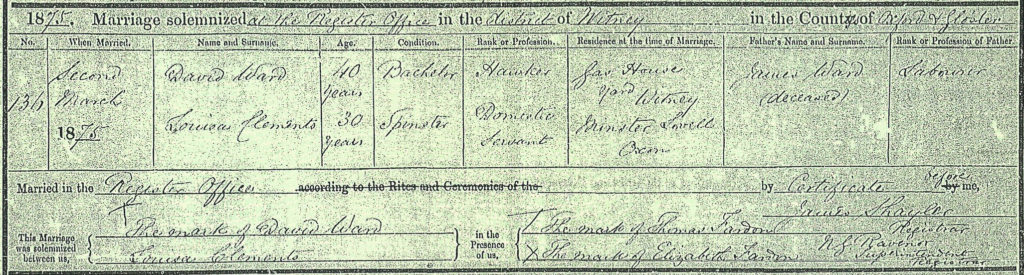 1875. Marriage solemnized at the Register Office in the district of Witney in the County of Oxford & Gloster
No. When Married. Name and Surname. Age. Condition. Rank or Profession. Residence at the time of Marriage. Father's Name and Surname. Rank or Profession of Father.
136 Second March 1875 David Ward 40 years Bachelor Hawker Gas House Yard Witney James Ward (deceased) Labourer
Louisa Clements 30 years Spinster Domestic Servant Minster Lovell Oxon
Married in the Register Office according to the Rites and Ceremonies of the by Certificate by before me,
This Marriage was solemnized between us, The mark of David Ward
Louisa Clements
in the Presence of us, X The mark of Thomas
X The mark of Elizabeth
James Shayler
Registrar
Superintendent Registrar